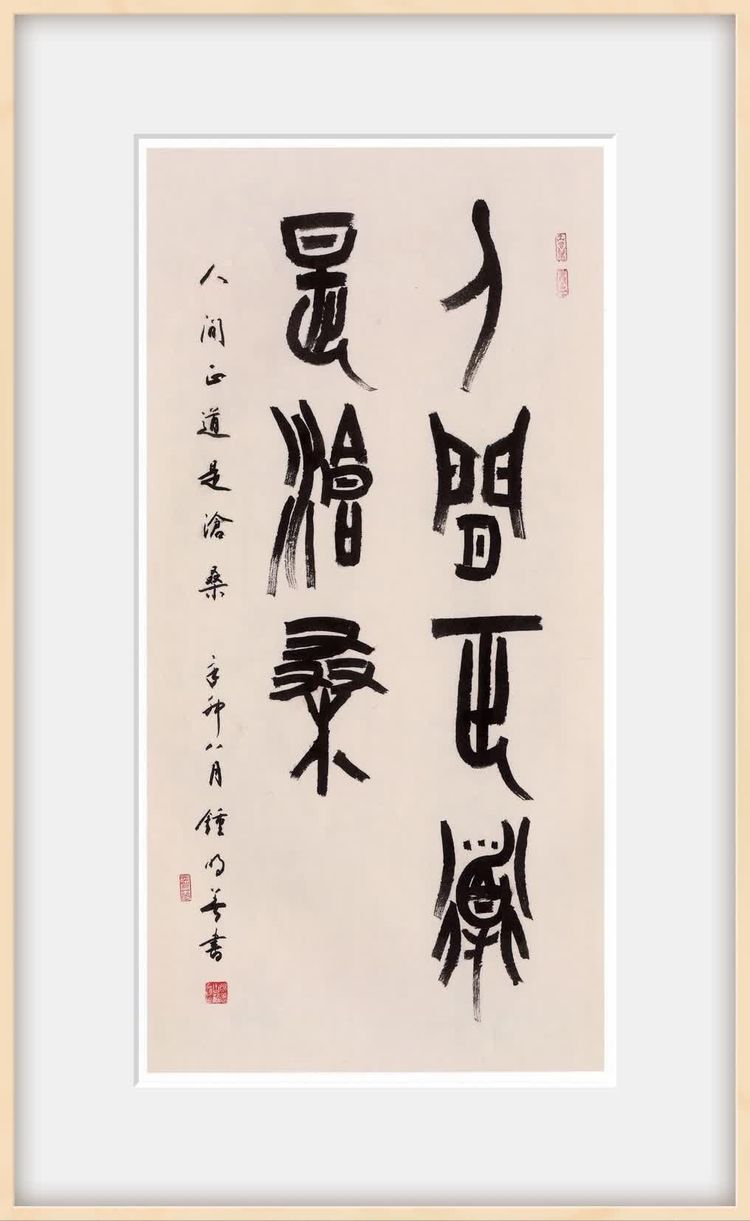 人間正道
是滄桑
人间正道是滄桑 辛卯八月鍾明善書